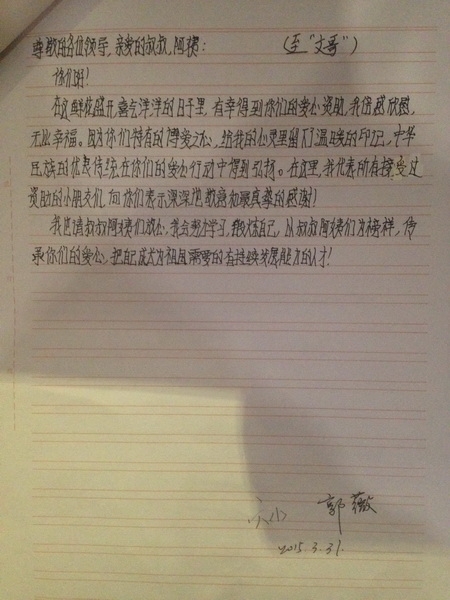 尊敬的各位领导,亲爱的叔叔,阿姨: (至“文哥”)
你们好!
在这鲜花盛开,喜气洋洋的日子里,有幸得到你们的爱心资助,我倍感欣慰,
无比幸福。因为你们特有的博爱之心,给我的心灵里留下了温暖的印记,中华
民族的优良传统在你们的爱心行动中得到弘扬。在这里,我代表所有接受过
资助的小朋友们,向你们表示深深地敬意和最真挚的感谢!
我也请叔叔阿姨们放心,我会努力学习,锻炼自己,以叔叔阿姨们为榜样,传
承你们的爱心,把自己成大为祖国需要的有持续发展能力的人才!
六小 郭薇
2015.3.31.